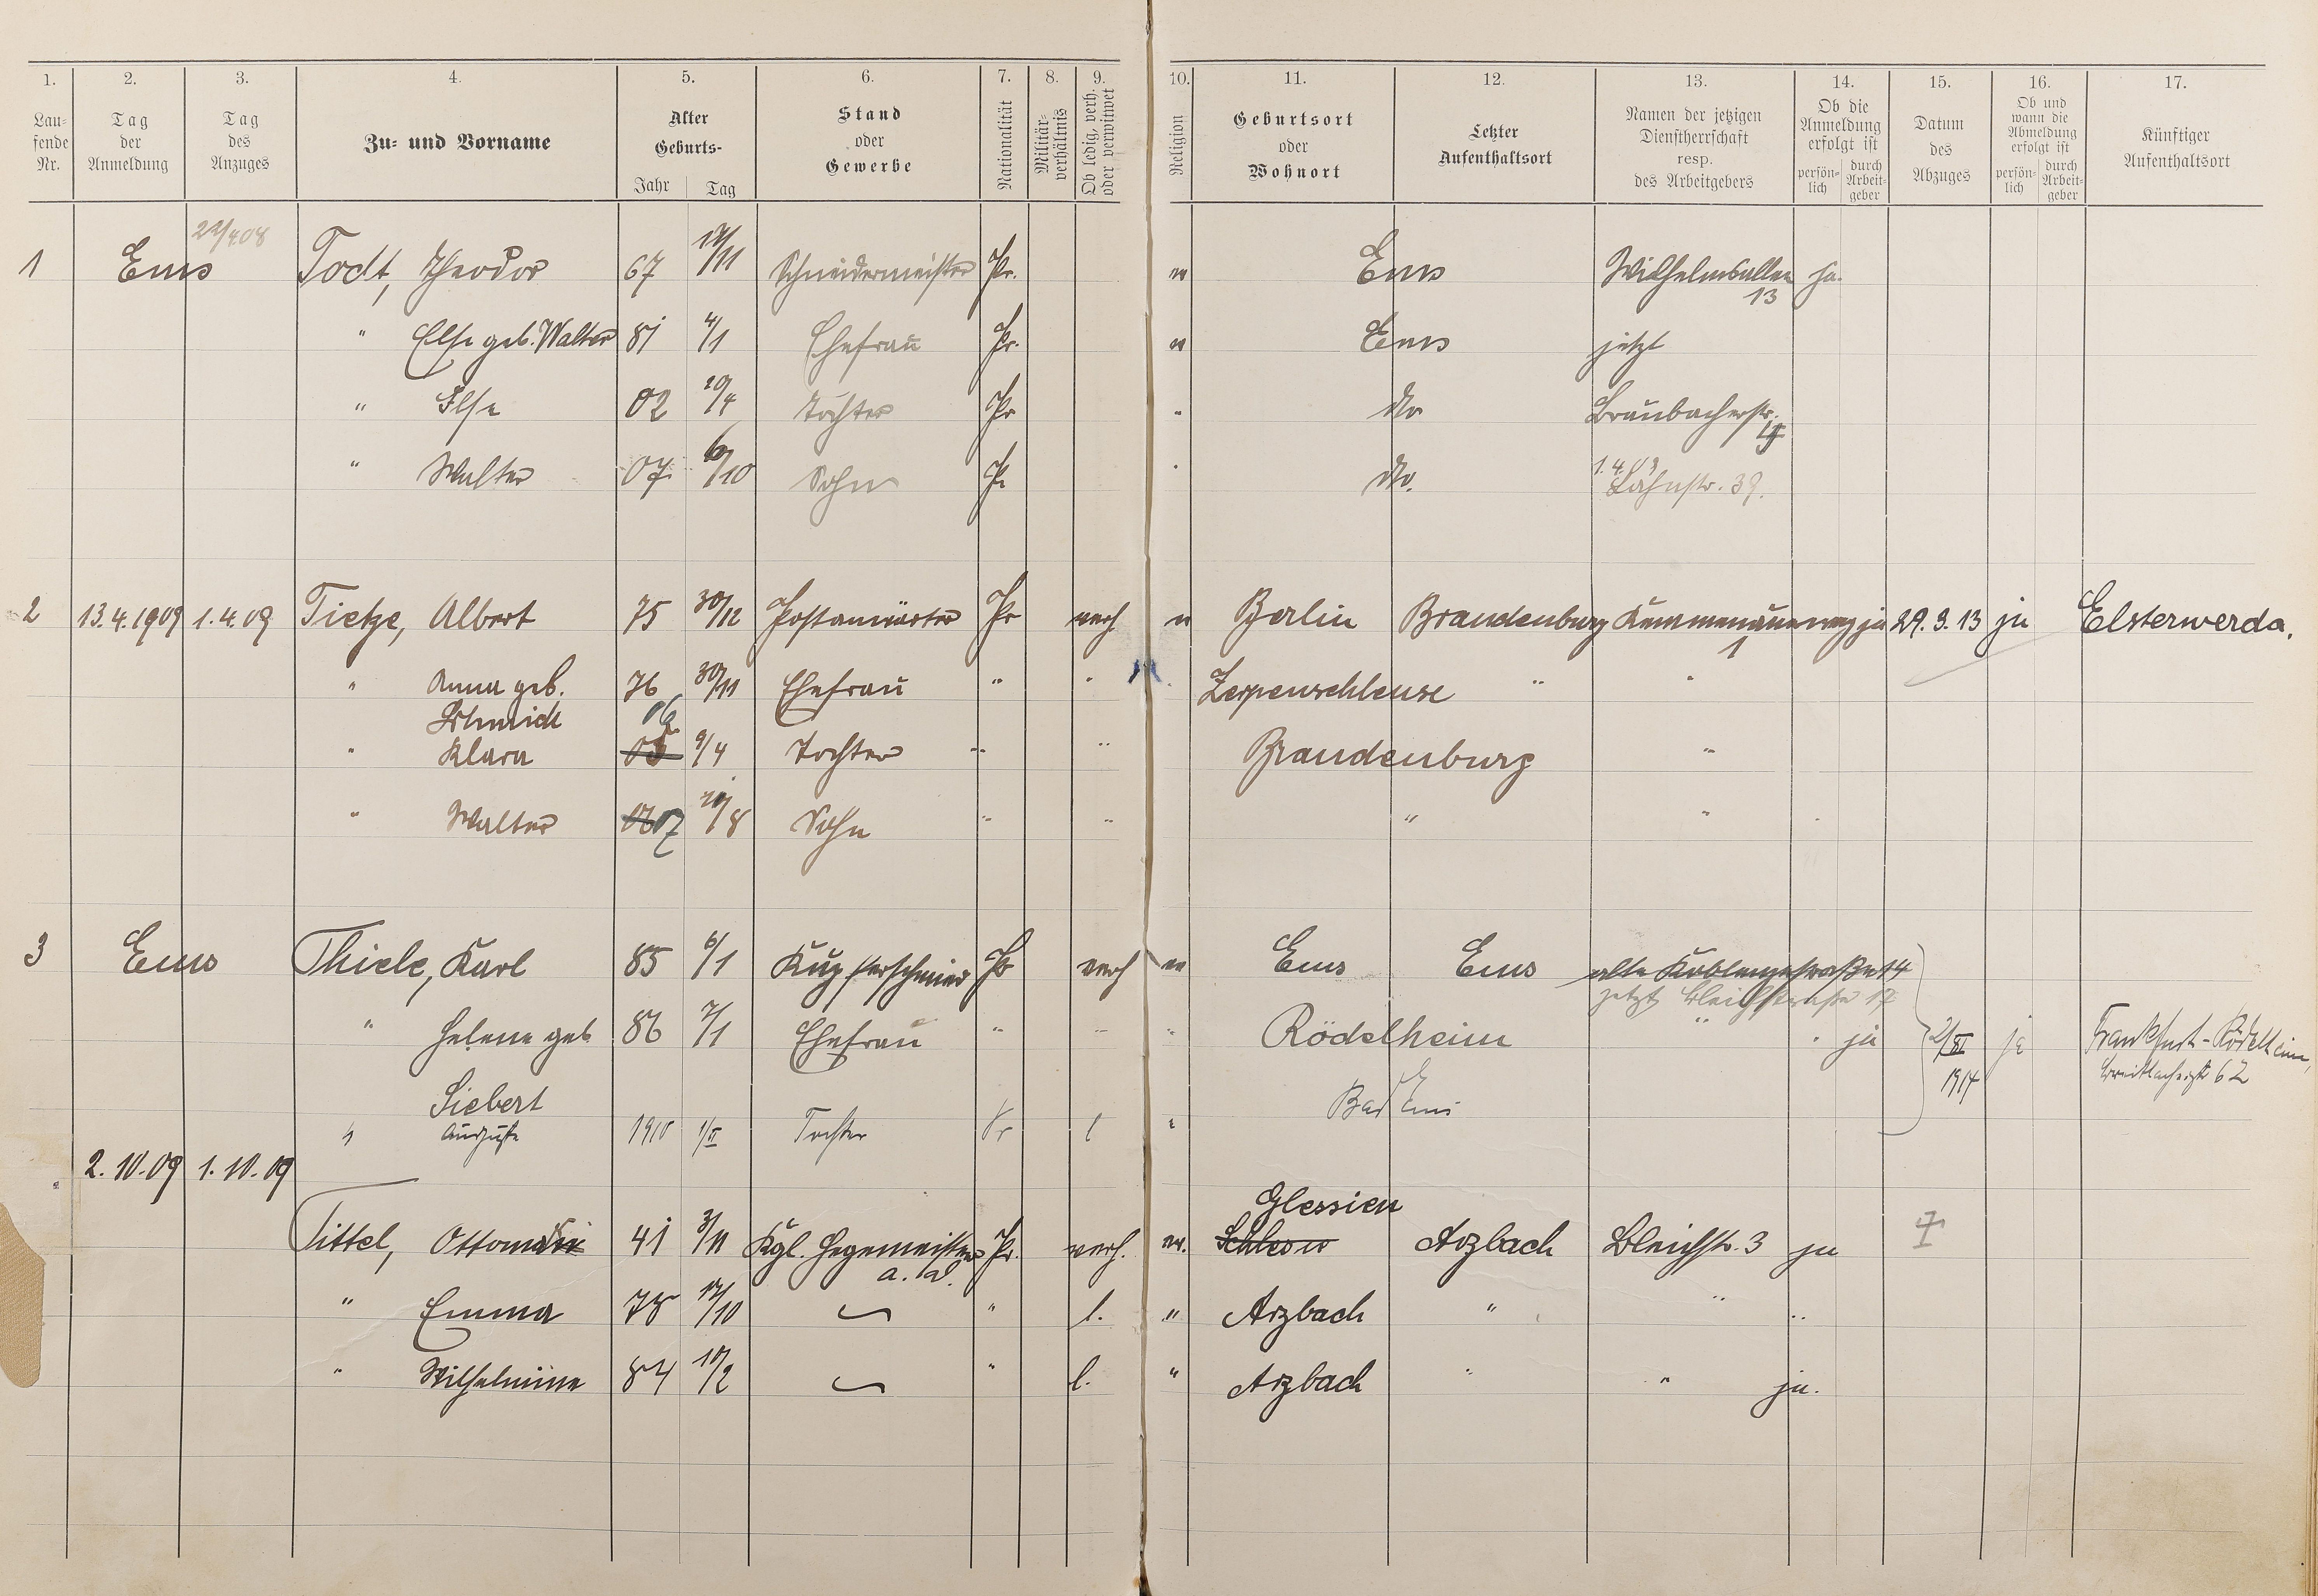 1. 2. 3. 4. 5. 6. 7. 8. 9. 10. 11. 12. 13. 14. 15. 16. 17.
Lau-
fende
Nr.
Tag
der
Anmeldung
Tag
des
Anzuges
Zu- und Vorname
Alter
Geburts-
Jahr Tag
Stand
oder
Gewerbe
Nationalität
Militär-
verhältnis
Ob ledig, verh.
oder verwitwet
Religion
Geburtsort
oder
Wohnort
Letzter
Aufenthaltsort
Namen der jetzigen
Dienstherrschaft
resp.
des Arbeitgebers
Ob die
Anmeldung
erfolgt ist
persön-
lich
durch
Arbeit-
geber
Datum
des
Abzuges
Ob und
wann die
Abmeldung
erfolgt ist
persön-
lich
durch
Arbeit-
geber
Künftiger
Aufenthaltsort
1 Ems Todt, Theodor 67 Schneidermeister Pr. Ems Wilhelmsallee ja.
13
" Else geb. Walter 81 4/1 Ehefrau Pr. Ems jetzt
" Ilse 02 20/4 Tochter Pr " do Braubacherstr.
" Walter 07 6/10 Sohn Pr do. Lahnstr. 39.
2 13.4.1909 1.4.09 Tietze, Albert 75 30/12 Postanwärter Pr verh Berlin Brandenburg Kemmenauerweg ja 29.3.13 ja Elsterwerda.
1
" Anna geb. 76 30/11 Ehefrau " " Zerpenschleuse " "
Schmidt
" Klara 05 06 9/4 Tochter " " Brandenburg "
" Walter 06 07 /8 Sohn " " " "
3 Ems Thiele, Karl 85 6/1 Kupferschmied Pr verh Ems Ems alte Koblenzestraße 14
jetzt Bleichstraße 17
" Helene geb 86 7/1 Ehefrau " " " Rödelheim " " ja 2/XI ja Frankfurt-Rödelheim,
1914
Siebert
" Auguste 1910 Tochter Pr l " Bad Ems
2.10.09 1.10.09
Glessien
Tittel, Ottomar 41 3/11 Kgl. Hegemeister Pr. verh. Arzbach Bleichstr. 3 ja
a. D.
" Emma 78 /10 " l. " Arzbach " " "
" Wilhelmine 84 10/2 " l. " Arzbach " " ja.